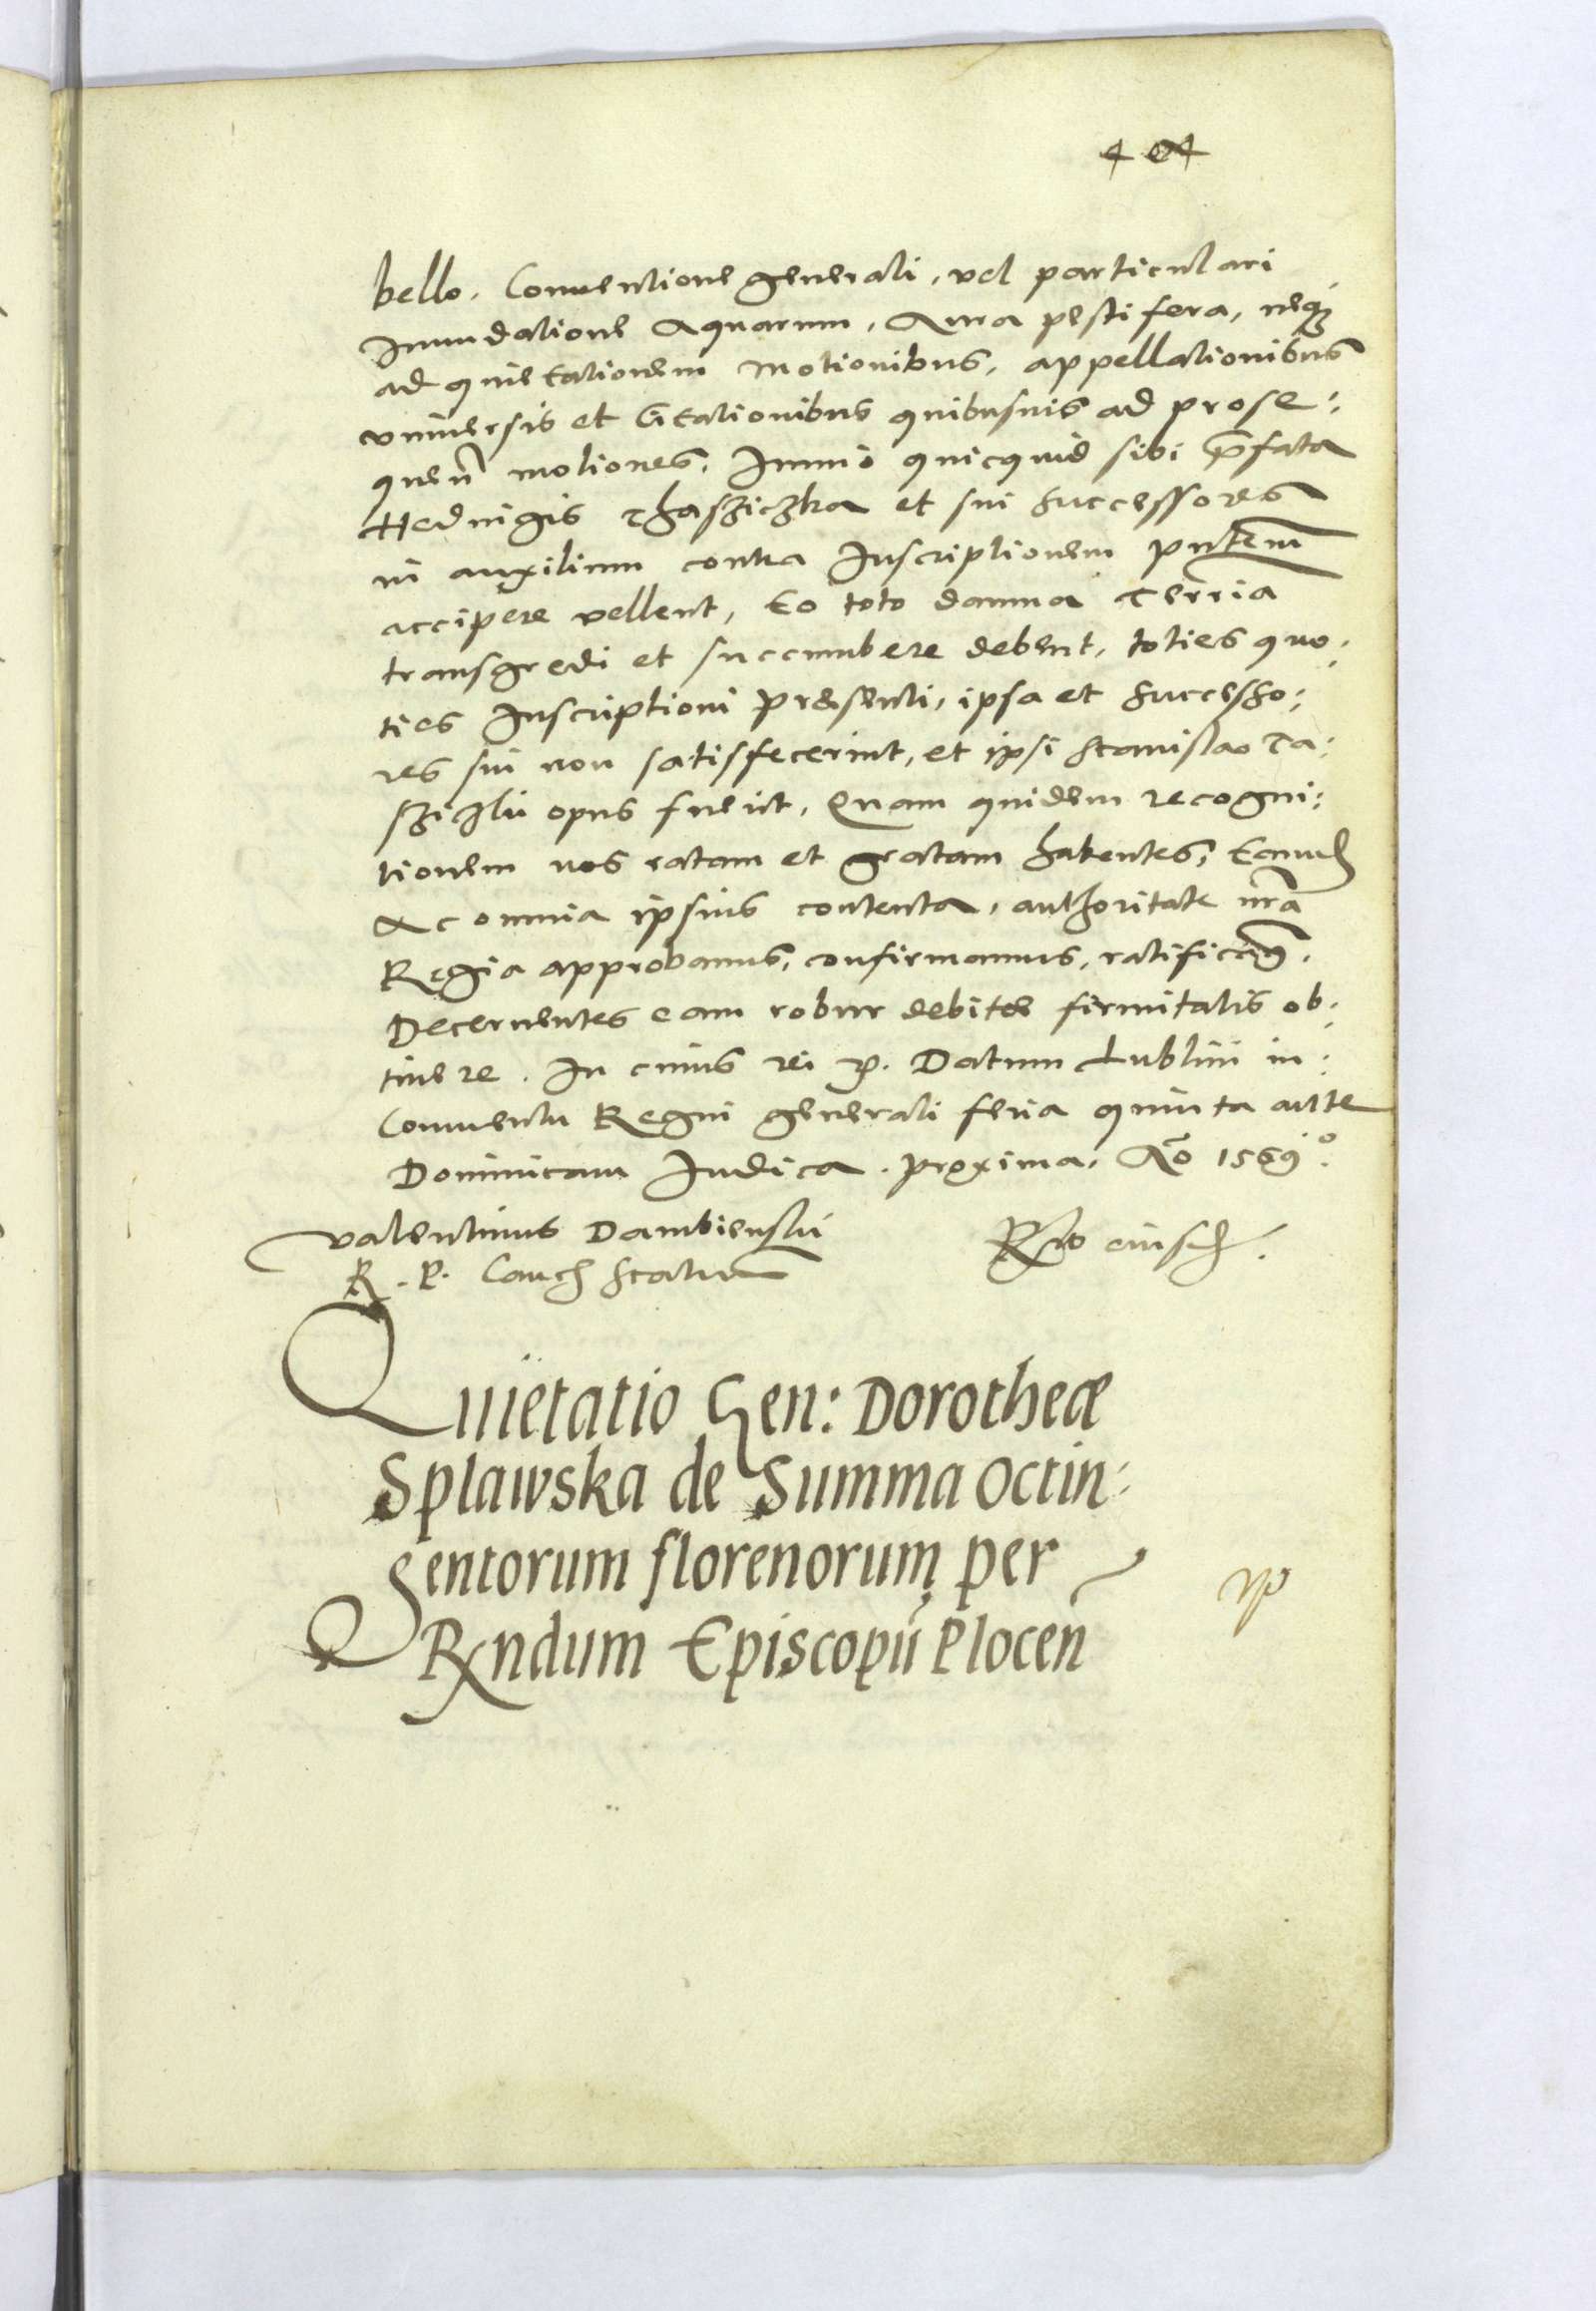 404
bello, Conventione generali, vel particulari
Inundatione Aquarum, Aura pestifera, neq3
ad quietationem motionibus, appellationibus
universis et Citationibus quibusuis ad prose:
quen̄ motiones, Immo quicquid sibi p̄fata
Heduigis Thasziczka et sui successores
in auxilium contra Inscriptionem pn̄tem
accipere vellent, Eo toto damna terria
transgredi et succumbere debent, toties quo:
ties Inscriptioni præsenti, ipsa et successo:
res sui non satisfecerint, et ipsi Stanislao Ta:
sziczki opus fuerit, Quam quidem recogni:
tionem nos ratam et gratam habentes, Eamd
ac omnia ipsius contenta, authoritate nr̄a
Regia approbamus, confirmamus, ratificamꝰ,
Decernentes eam robur debitæ firmitatis ob:
tinere. In cuius rei p. Datum Lublini in:
Conventu Regni generali feria quinta ante
Dominicam Iudica proxima, Aō 1569°.
Valentinus Dambienski
R. P. Canc̄ Scatur
Rt̄o eiusd̄.
Quietatio Gen: Dorotheæ
Splawska de Summa Octin:
gentorum florenorum per
Rx̄ndum Episcopū Plocen̄